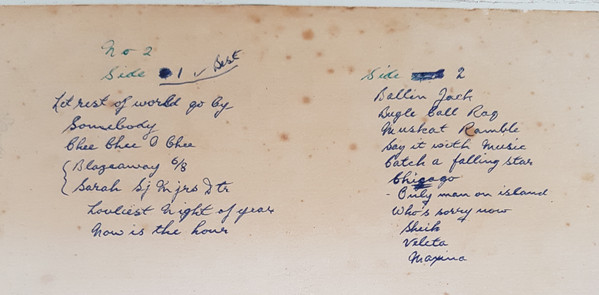 No 2
Side 1 ✓ Best
Let rest of world go by
Somebody
Chee Chee O Chee
Blazeaway 6/8
Sarah Sj Knjrs Dtr
Louliest Night of year
Now is the hour
Side 2
Ballin Jack
Bugle Call Rag
Muskat Ramble
Say it with Music
Catch a falling star
Chicago
- Only man on island
Who's sorry now
Sheik
Veleta
Maxina